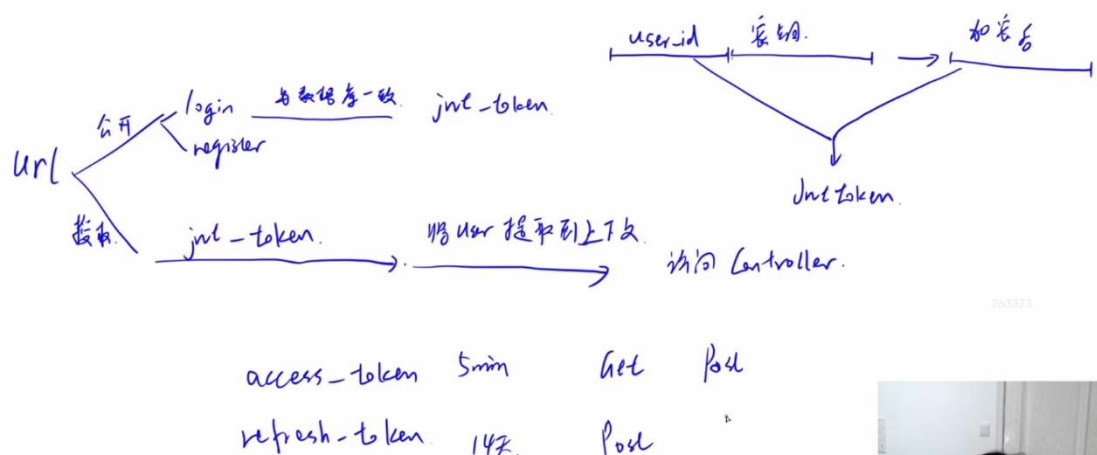 user_id 密钥. → 加密后
公开 login 与数据库一致. jwt-token.
register
url
Jwt token.
授权. jwt-token. 将user提取到上下文. 访问Controller.
263323
access-token 5min Get Post
refresh-token 14天. Post